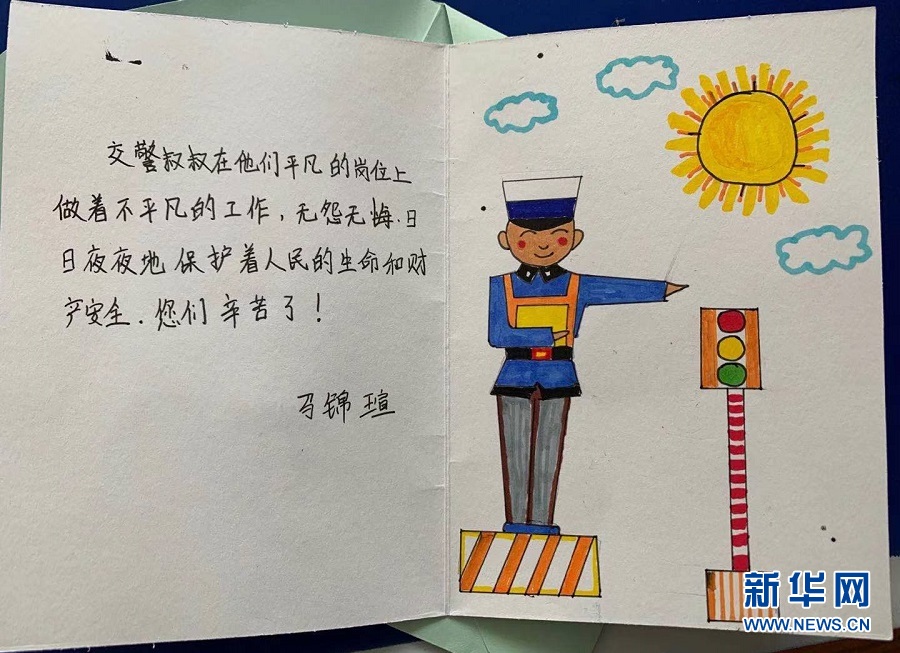 交警叔叔在他们平凡的岗位上
做着不平凡的工作，无怨无悔.日
日夜夜地保护着人民的生命和财
产安全.您们辛苦了！
马锦瑄
新华网
WWW.NEWS.CN